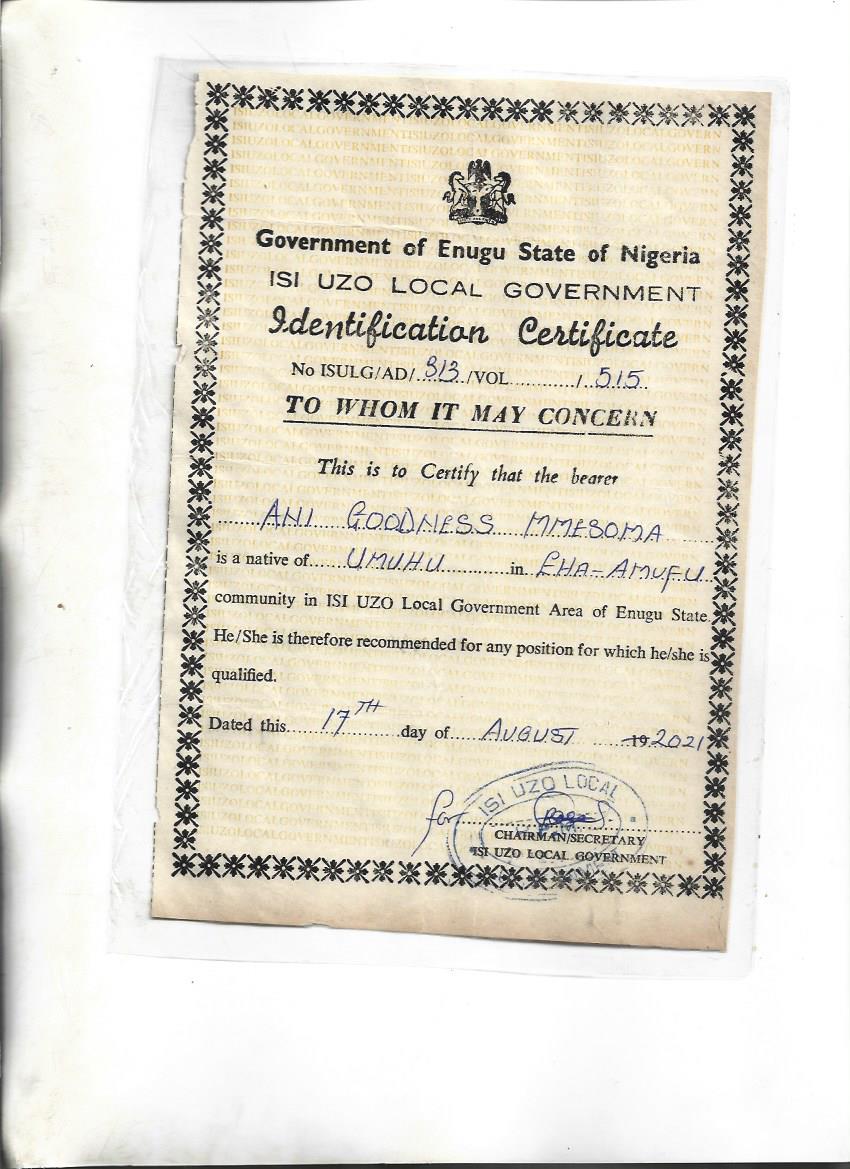 Government of Enugu State of Nigeria
ISI UZO LOCAL GOVERNMENT
Identification Certificate
No ISULG/AD/.313./VOL............/.515.
TO WHOM IT MAY CONCERN
This is to Certify that the bearer
ANI GOODNESS MMESOMA
is a native of UMUHU in EHA-AMUFU
community in ISI UZO Local Government Area of Enugu State.
He/She is therefore recommended for any position for which he/she is
qualified.
Dated this 17TH day of AUGUST 19 2021
ISI UZO LOCAL
for
CHAIRMAN/SECRETARY
ISI UZO LOCAL GOVERNMENT